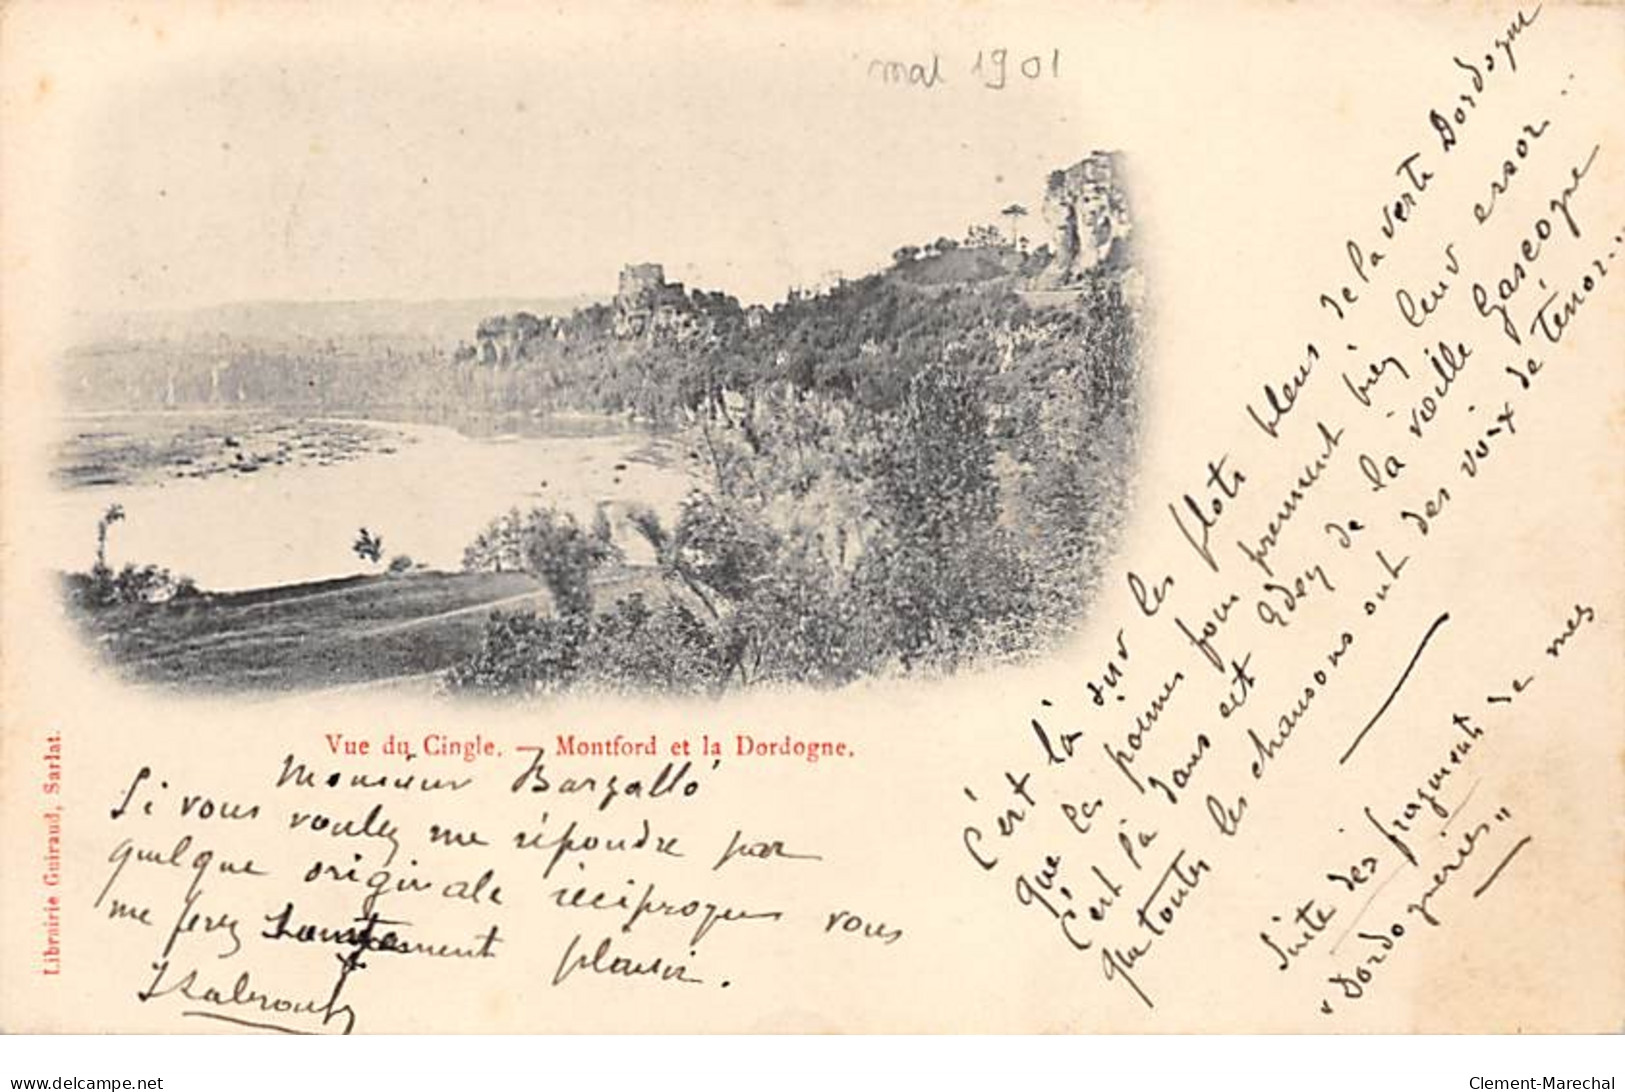 mai 1901
Vue du Cingle. — Montford et la Dordogne.
Librairie Guiraud, Sarlat.
Monsieur Bargalló
Si vous voulez me répondre par
quelque originale réciproque vous
me ferez plaisir.
C'est là sur les flots bleus de la verte Dordogne
que les poèmes pour prennent bien leur essor...
C'est là dans cet Eden de la vieille Gascogne
que toutes les chansons ont des voix de ténor..
Suite des fragments de mes
"Dordogneries"
delcampe.net
Clement-Marechal